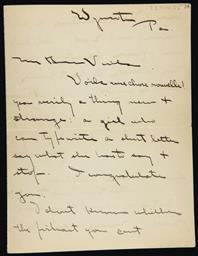 Wyncote
Pa
My dear Viola.
Voila une chose nouvelle!
you verily a thing new &
strange. a girl who
can typewrite a short letter
say what she has to say &
stop. I congratulate
you.
I dont know whether
the portrait you sent